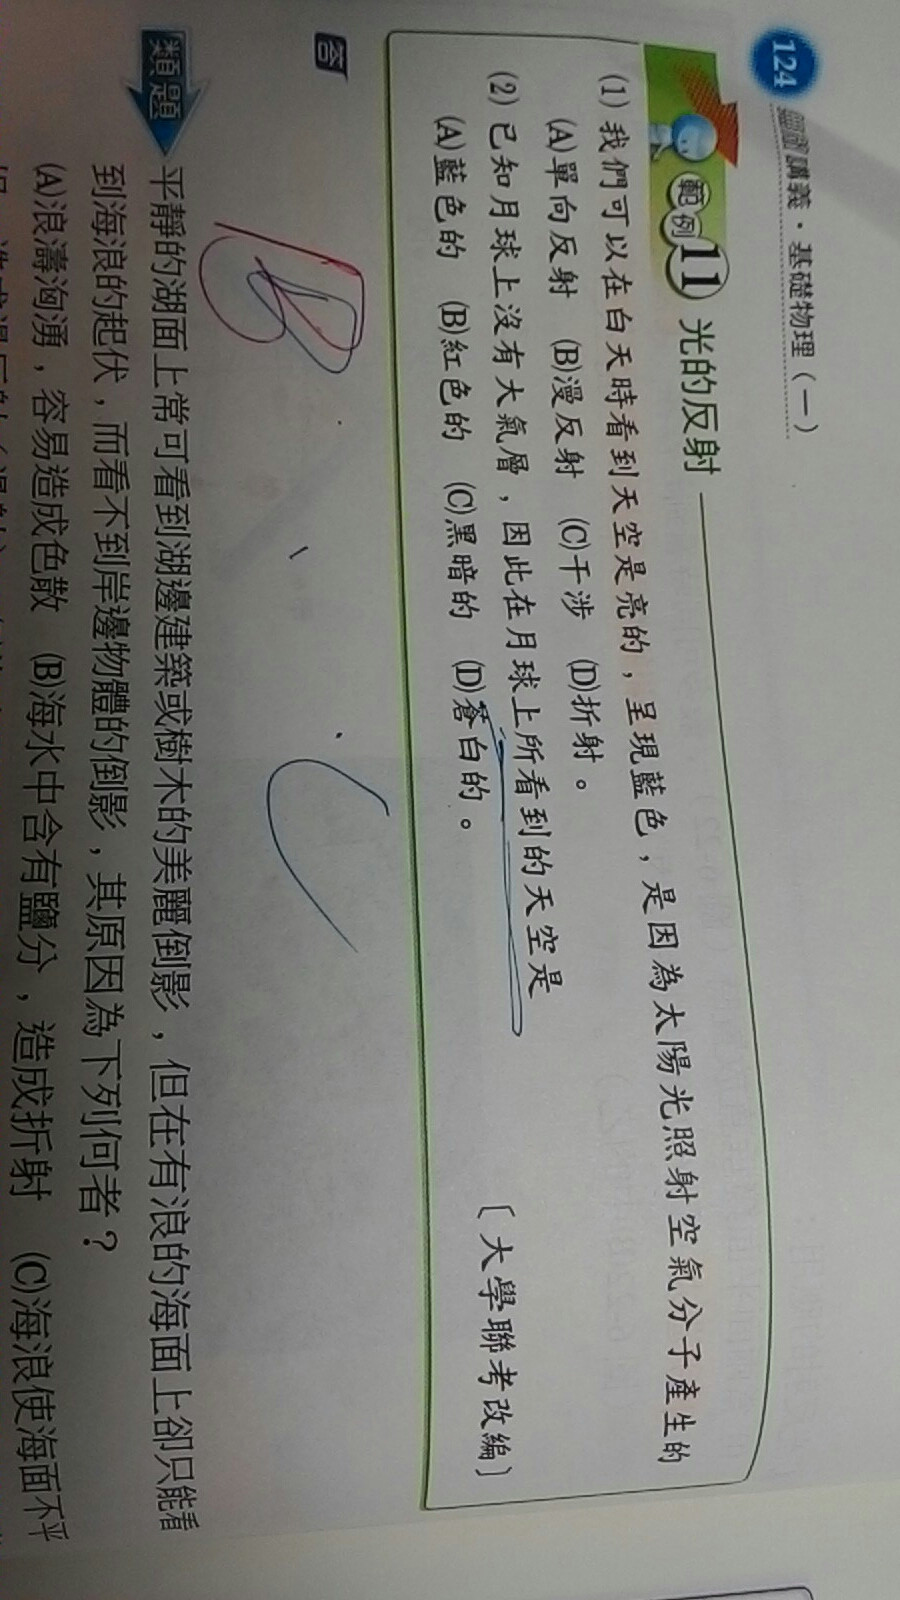 124 講義．基礎物理（一）
範例 11 光的反射
(1) 我們可以在白天時看到天空是亮的，呈現藍色，是因為太陽光照射空氣分子產生的
(A)單向反射 (B)漫反射 (C)干涉 (D)折射。
(2) 已知月球上沒有大氣層，因此在月球上所看到的天空是
(A)藍色的 (B)紅色的 (C)黑暗的 (D)蒼白的。
〔大學聯考改編〕
答
B C
類題 平靜的湖面上常可看到湖邊建築或樹木的美麗倒影，但在有浪的海面上卻只能看
到海浪的起伏，而看不到岸邊物體的倒影，其原因為下列何者？
(A)浪濤洶湧，容易造成色散 (B)海水中含有鹽分，造成折射 (C)海浪使海面不平